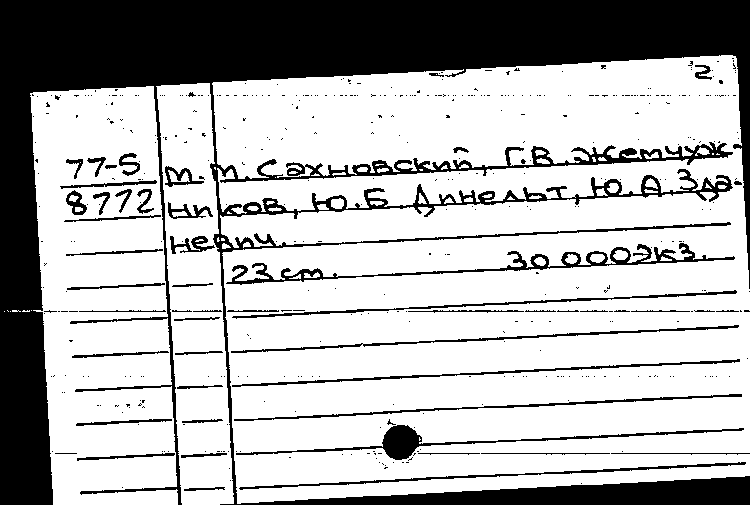 2.
77-5 М.М. Сахновский, Г.В. Жемчуж-
8772 ников, Ю.Б Динельт, Ю.А. Зда-
невич.
23 см. 30 000 экз.